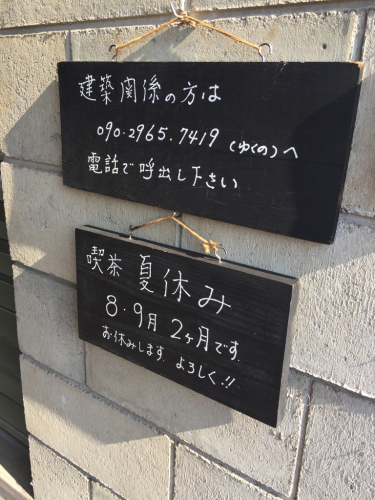 建築関係の方は
090.2965.7419(ゆくの)へ
電話で呼出し下さい
喫茶 夏休み
8・9月 2ヶ月です.
お休みします. よろしく!!